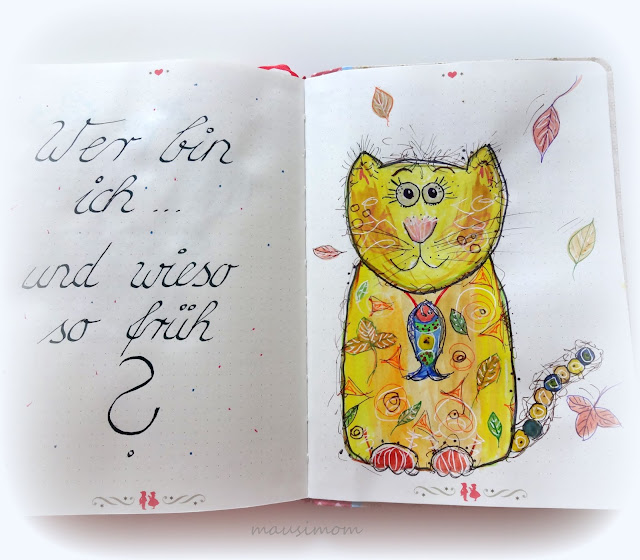 Wer bin
ich ...
und wieso
so früh
?
mausimom